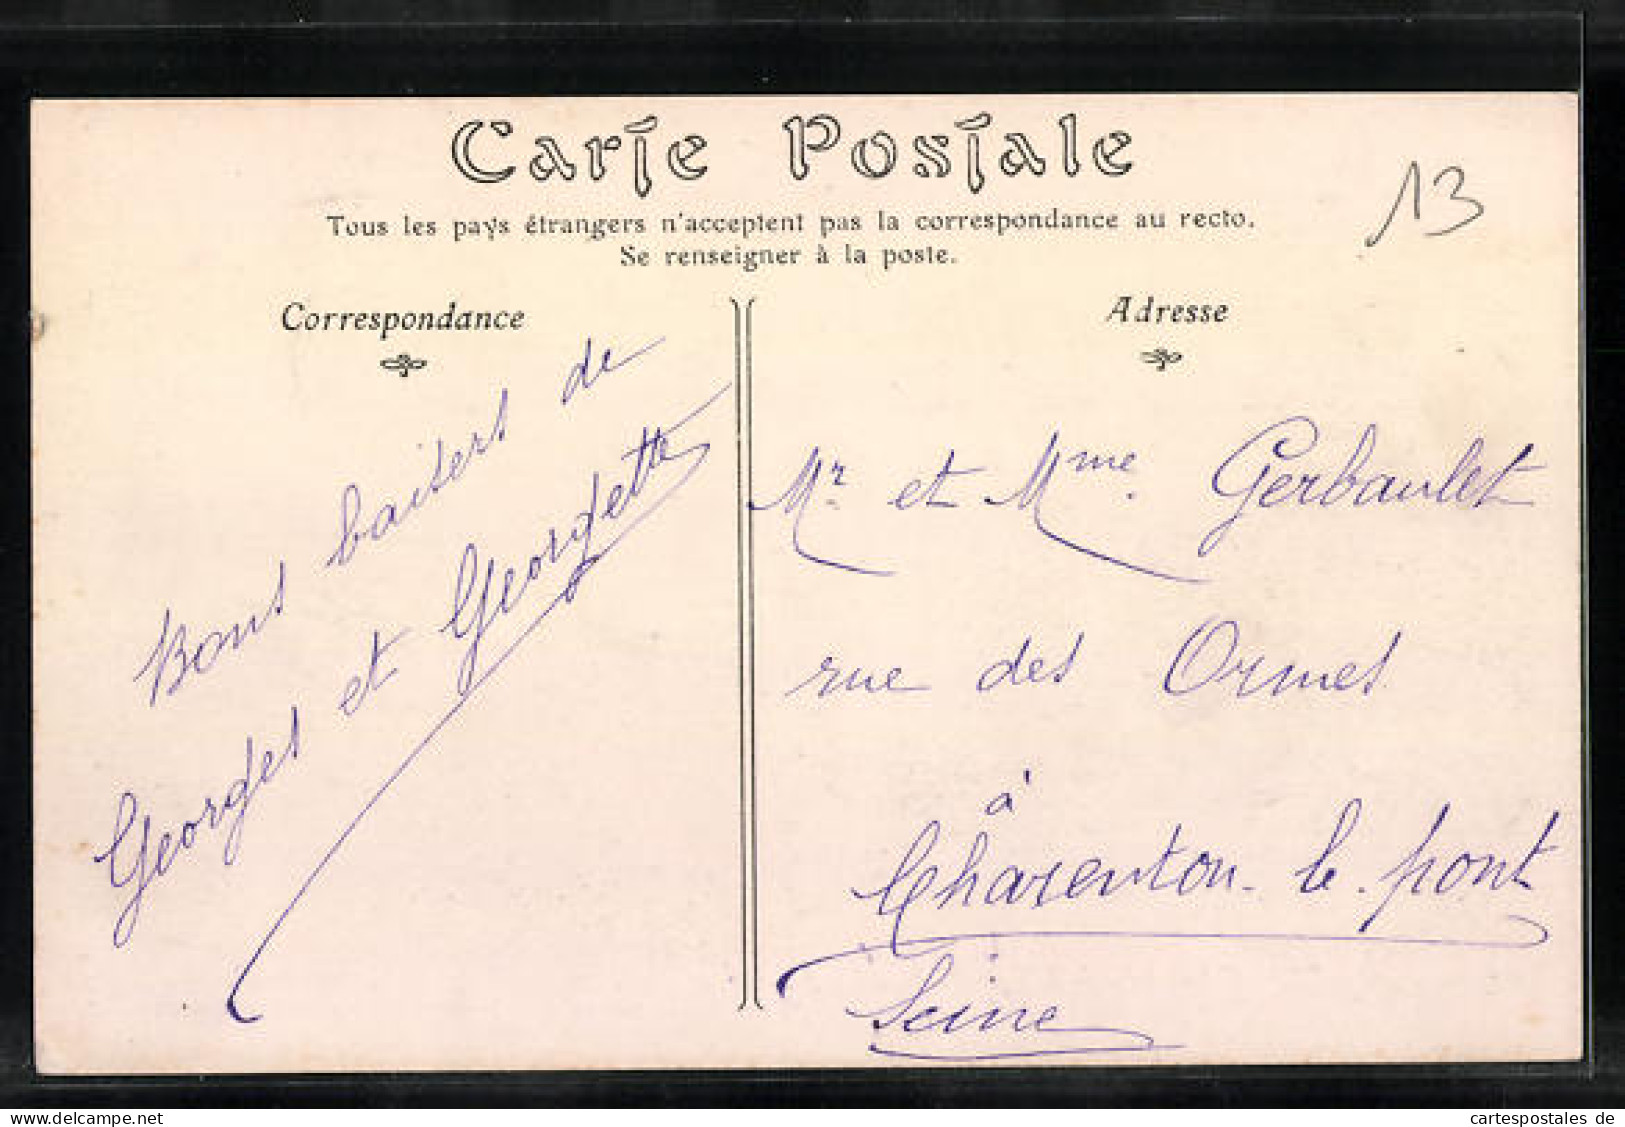 Carte Postale
Tous les pays étrangers n'acceptent pas la correspondance au recto.
Se renseigner à la poste.
13
Correspondance
Bons baisers de
Georges et Georgette
Adresse
Mr. et Mme. Gerbault
rue des Ormes
à
Charenton-le-pont
Seine
cartespostales de